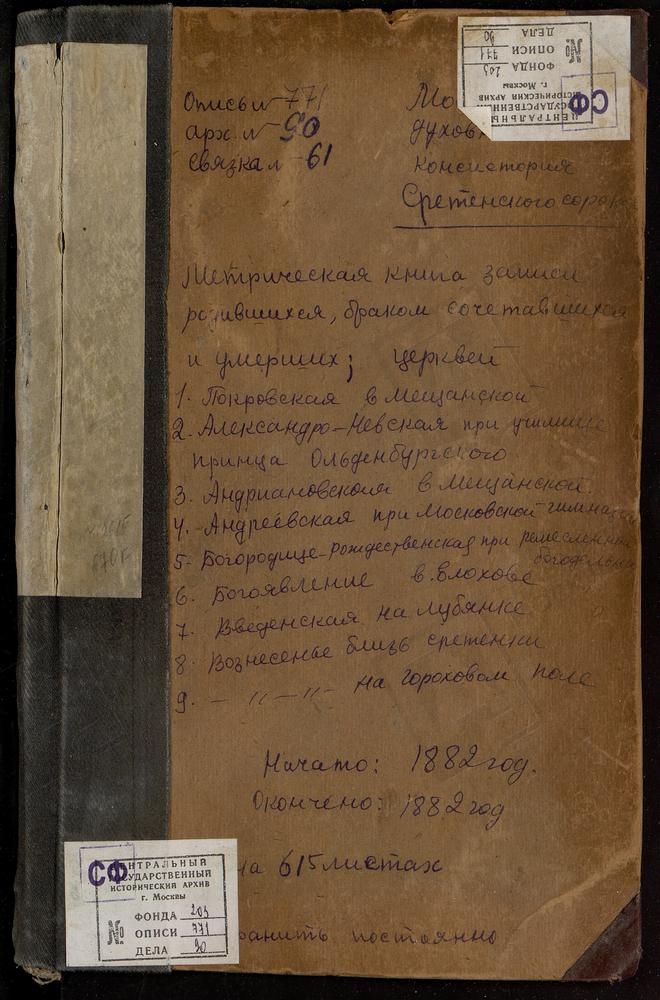 ДЕЛА 90
№ ОПИСИ 771
ФОНДА 203
г. Москвы
ИСТОРИЧЕСКИЙ АРХИВ
ГОСУДАРСТВЕНН
ЦЕНТРАЛЬНЫ
СФ
Опись № 771
арх. № 90
связка № 61
Мо
духовн
Консистория
Сретенского соро
Метрическая книга записи
родившихся, браком сочетавшихся
и умерших; церквей
1. Покровская в Мещанской
2. Александро-Невская при училище
принца Ольденбургского
3. Андриановской в Мещанской.
4. Андреевская при Московской гимназии
5. Богородице-Рождественская при ремесленной
богадельне
6. Богоявление в Елохове
7. Введенская на Лубянке
8. Вознесенье близь сретенки
9. - 〃 - 〃 - на гороховом поле
Начато: 1882 год.
Окончено: 1882 год
на 615 листах
ранить постоянно
СФ
ЕНТРАЛЬНЫЙ
СУДАРСТВЕННЫЙ
ИСТОРИЧЕСКИЙ АРХИВ
г. Москвы
ФОНДА 203
№ ОПИСИ 771
ДЕЛА 90